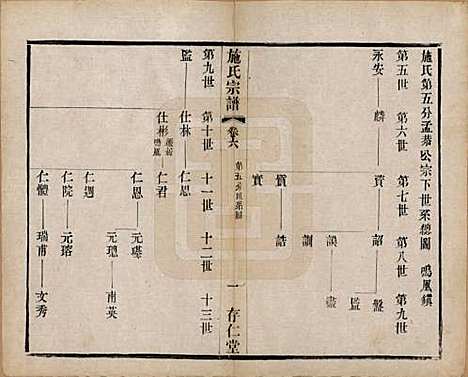 施氏第五分孟恭公宗下世系總圖 鳴鳳鎮
第五世 第六世 第七世 第八世 第九世
永安 麟 資 詔 盤
監
誤 盡
訓
質 誥
實
施氏宗譜
卷六
第五分世系圖
一 存仁堂
第九世 第十世 十一世 十二世 十三世
監 仕林 仁恩
仕彬 遷居鳴鳳 仁君
仁思 元璂
元璁 南英
仁遇
仁院 元瑢
仁體 瑞甫 文秀